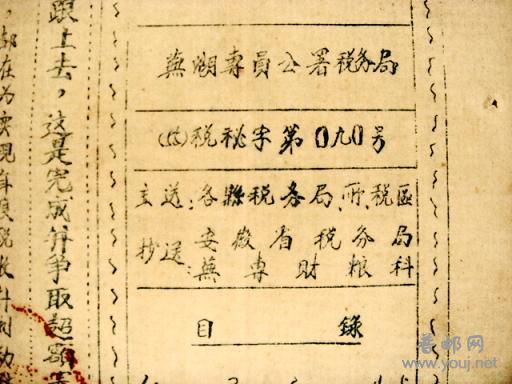 蕪湖專員公署税务局
税秘字第090号
主送：各縣税务局、所、税區
抄送：安徽省税务局
蕪專財粮科
目錄
跟上去，这是完成并争取超額
都在为实现年度税收计划
善邮网
www.youj.net